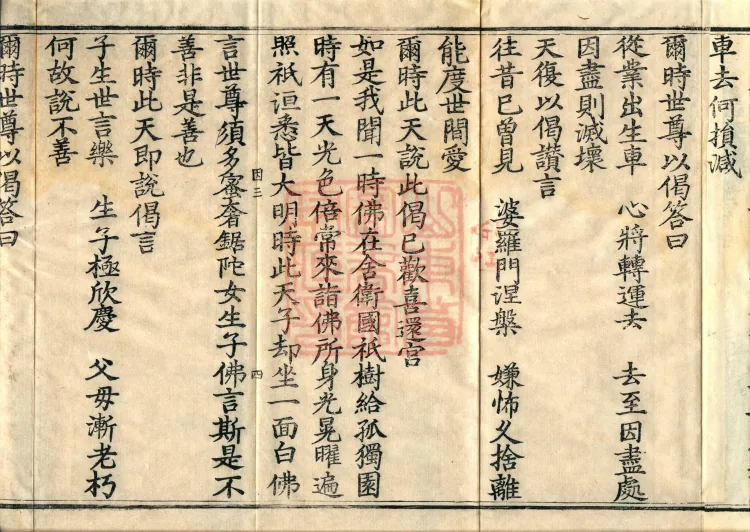 車去何損減
爾時世尊以偈答曰
從業出生車　心將轉運去　去至因盡處
因盡則滅壞
天復以偈讚言
往昔已曾見　婆羅門涅槃　嫌怖久捨離
能度世間愛
爾時此天說此偈已歡喜還宮
如是我聞一時佛在舍衛國祇樹給孤獨園
時有一天光色倍常來詣佛所身光晃曜遍
照祇洹悉皆大明時此天子却坐一面白佛
言世尊須多蜜奢鋸陀女生子佛言斯是不
善非是善也
爾時此天即說偈言
子生世言樂　生子極欣慶　父母漸老朽
何故說不善
爾時世尊以偈答曰
因三
四